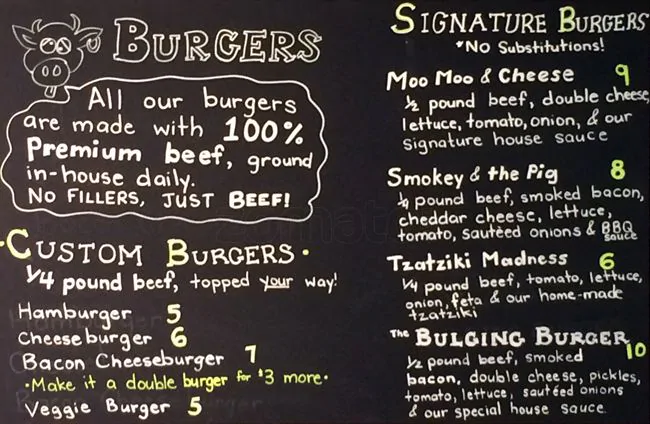 BURGERS
All our burgers
are made with 100%
Premium beef, ground
in-house daily.
NO FILLERS, JUST BEEF!
·CUSTOM BURGERS·
1/4 pound beef, topped your way!
Hamburger 5
Cheeseburger 6
Bacon Cheeseburger 7
·Make it a double burger for $3 more·
Veggie Burger 5
SIGNATURE BURGERS
*No Substitutions!
Moo Moo & Cheese 9
1/2 pound beef, double cheese,
lettuce, tomato, onion, & our
signature house sauce
Smokey & the Pig 8
1/4 pound beef, smoked bacon,
cheddar cheese, lettuce,
tomato, sautéed onions & BBQ
sauce
Tzatziki Madness 6
1/4 pound beef, tomato, lettuce,
onion, feta & our home-made
tzatziki
The BULGING BURGER 10
1/2 pound beef, smoked
bacon, double cheese, pickles,
tomato, lettuce, sautéed onions
& our special house sauce